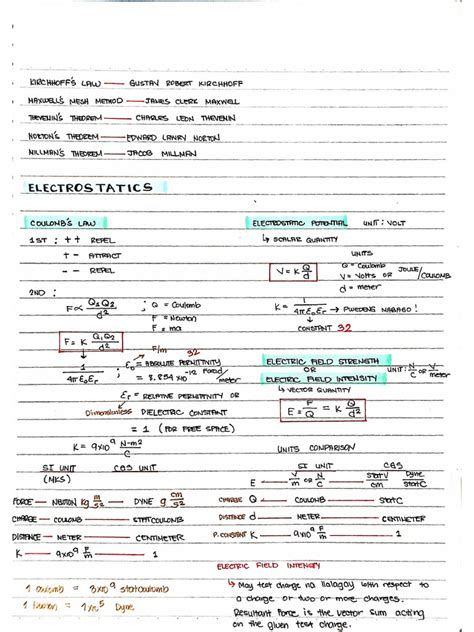 KIRCHHOFF'S LAW — GUSTAV ROBERT KIRCHHOFF
MAXWELL'S MESH METHOD — JAMES CLERK MAXWELL
THEVENIN'S THEOREM — CHARLES LEON THEVENIN
NORTON'S THEOREM — EDWARD LAWRY NORTON
MILLMAN'S THEOREM — JACOB MILLMAN
ELECTROSTATICS
COULOMB'S LAW
1ST : + + REPEL
+ - ATTRACT
- - REPEL
2ND :
F ∝ Q1Q2 / d² ; Q = Coulomb
F = Newton
F = ma
F = K Q1Q2 / d²
F/m
32
1 / 4πεoεr ; εo = ABSOLUTE PERMITIVITY
= 8.854 x10⁻¹² Farad/meter
εr = RELATIVE PERMITIVITY OR
Dimensionless DIELECTRIC CONSTANT
= 1 (FOR FREE SPACE)
K = 9x10⁹ N-m²/C
SI UNIT CGS UNIT
(MKS)
FORCE — NEWTON kg m/s² — DYNE g cm/s²
CHARGE — COULOMB — STATCOULOMB
DISTANCE — METER — CENTIMETER
K — 9x10⁹ F/m — 1
1 coulomb = 3x10⁹ statcoulomb
1 Newton = 1x10⁵ Dyne
ELECTROSTATIC POTENTIAL UNIT: VOLT
↳ SCALAR QUANTITY
UNITS
V = K Q/d
Q = Coulomb
V = Volts OR JOULE/COULOMB
d = meter
K = 1 / 4πεoεr → PWEDENG MABAGO!
CONSTANT 32
ELECTRIC FIELD STRENGTH
OR
ELECTRIC FIELD INTENSITY
UNIT: N/C OR V/meter
↳ VECTOR QUANTITY
E = F/Q = K Q/d²
UNITS COMPARISON
SI UNIT CGS
E — V/m OR N/C — statV/cm Dyne/statC
CHARGE Q — COULOMB — STATC
DISTANCE d — METER — CENTIMETER
P. CONSTANT K — 9x10⁹ F/m — 1
ELECTRIC FIELD INTENSITY
↳ May test charge na ilalagay with respect to
a charge or two or more charges.
Resultant force is the vector sum acting
on the given test charge.